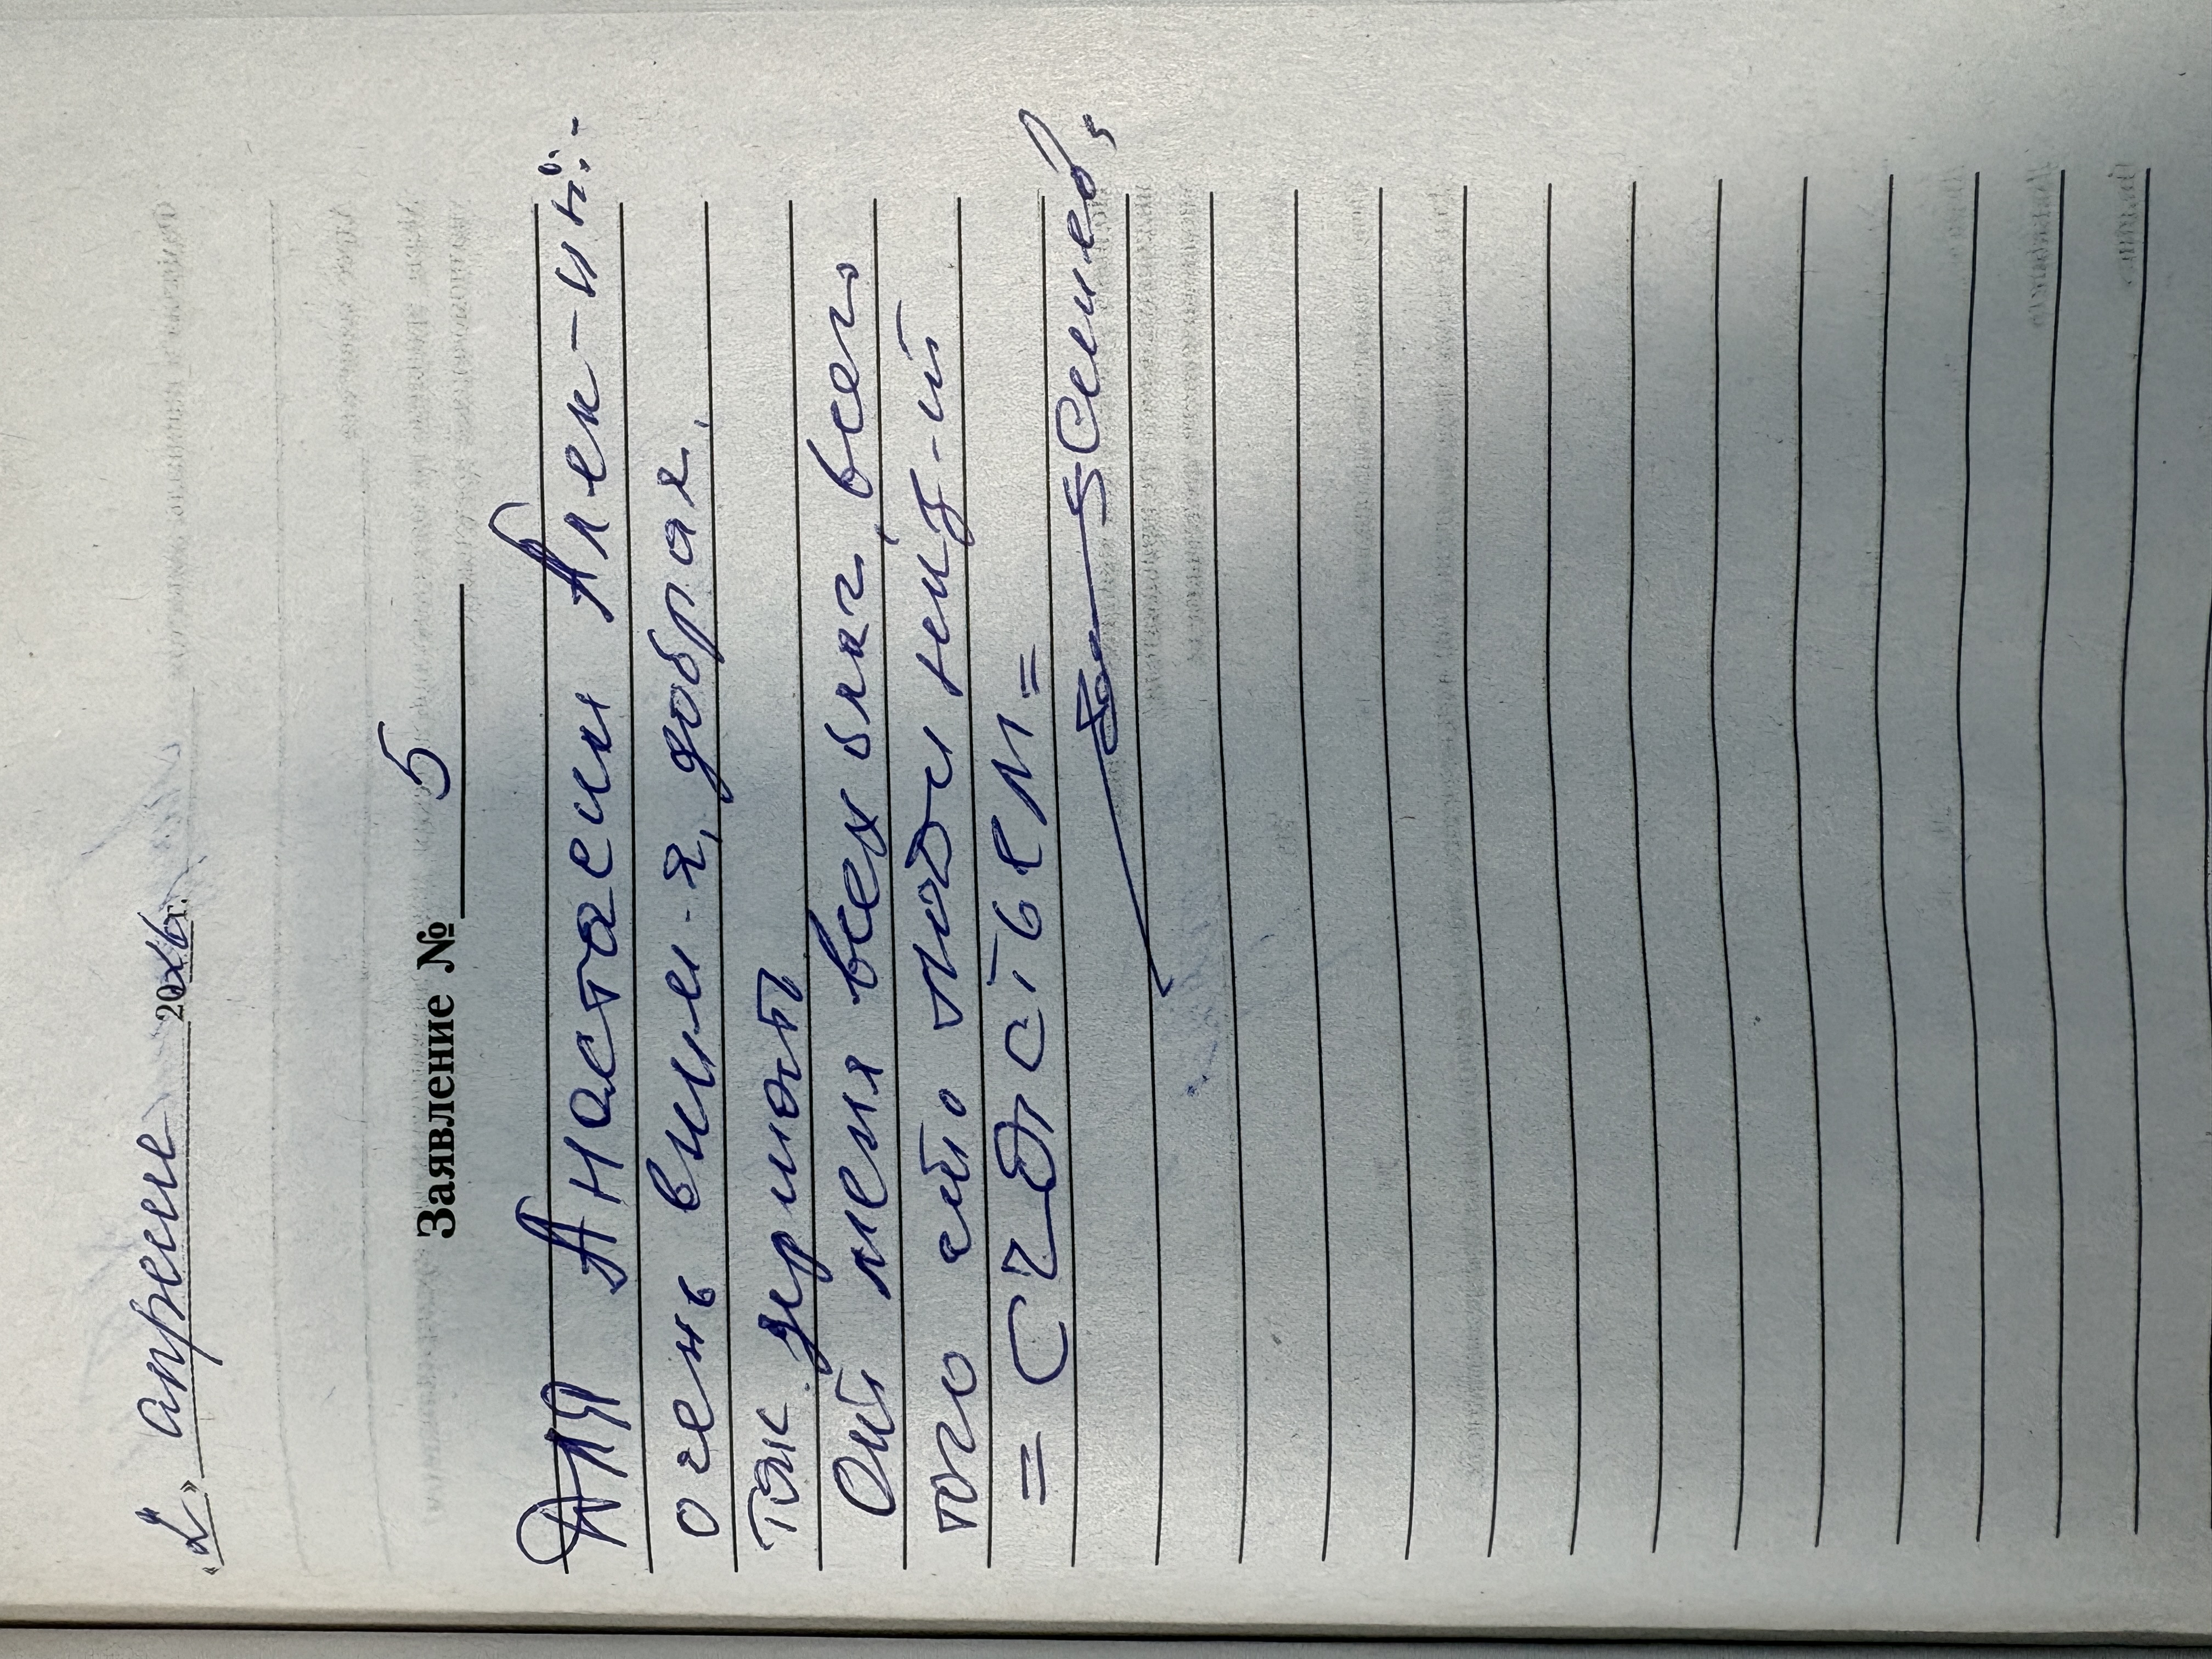 «2» апреля 2026г.
Заявление № 5
Для Анастасии Алек-ны:-
очень вним-я, добрая.
Так держать
От меня всех благ, всего
того что люди жел-й
= СЧАСТЬЕМ =
Семнев,